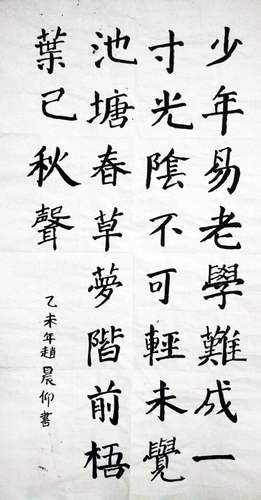 少年易老學難成一
寸光陰不可輕未覺
池塘春草夢階前梧
葉已秋聲
乙未年趙晨仰書